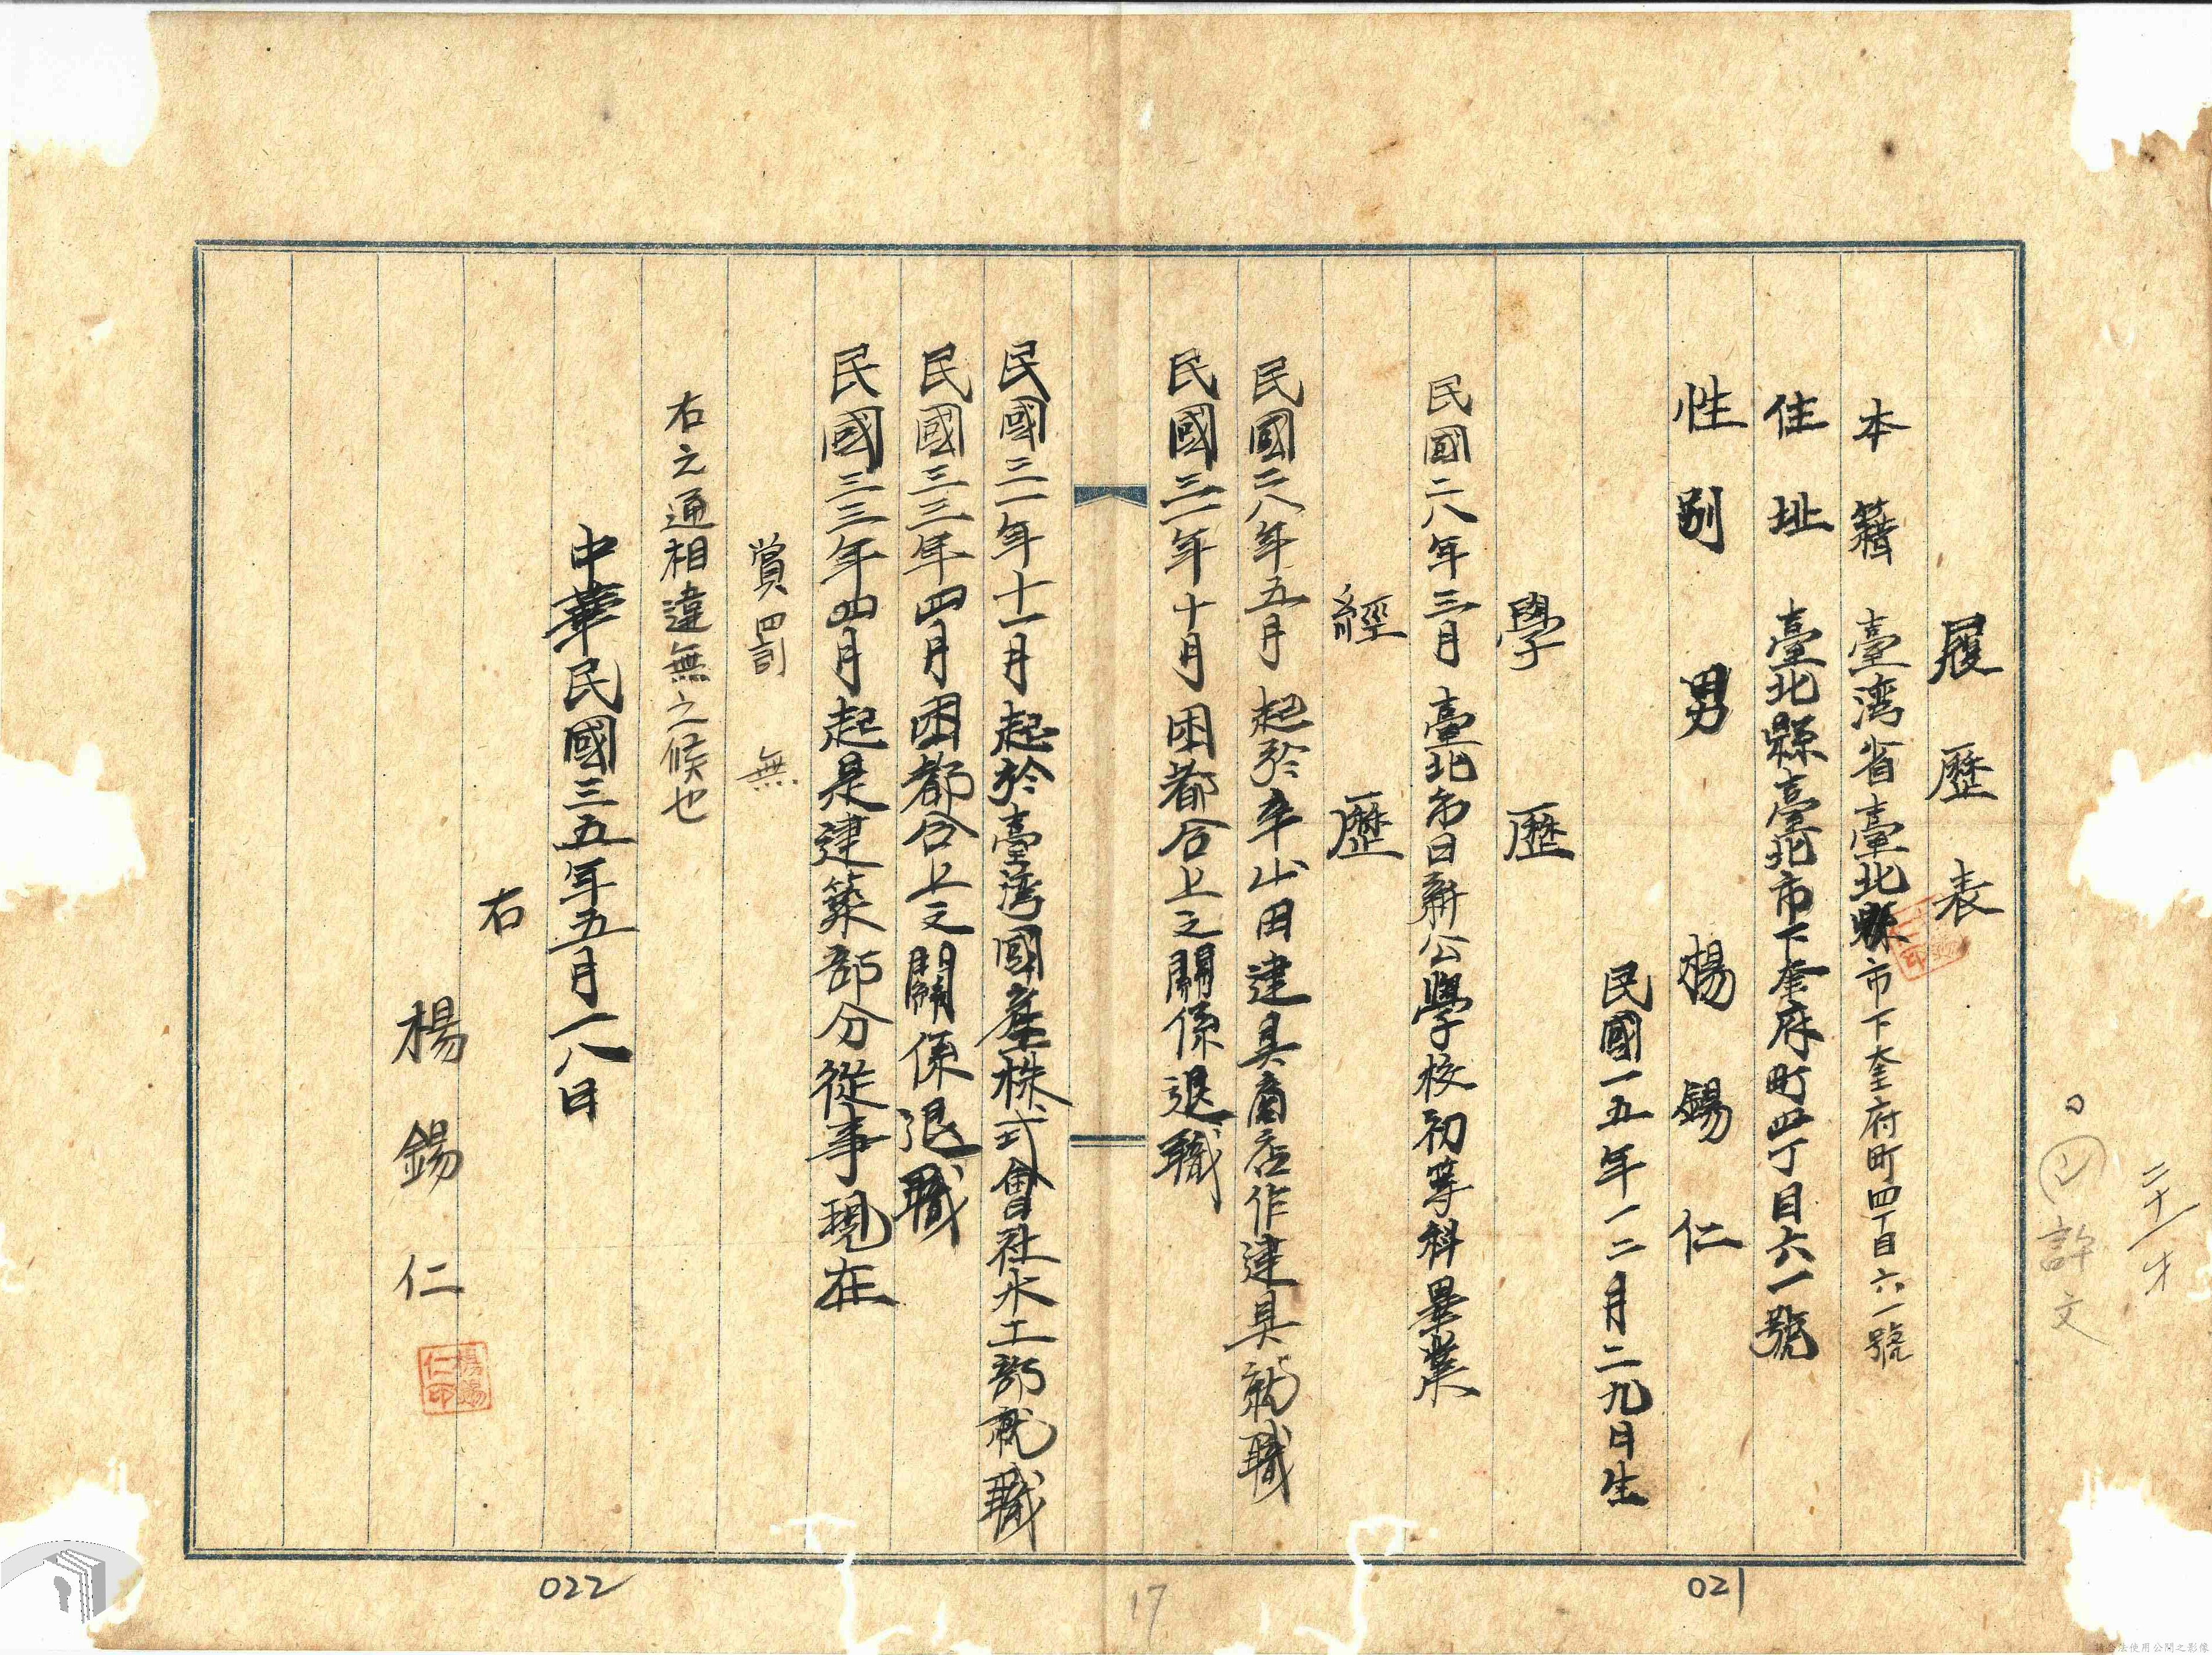 履歷表
本籍 臺湾省臺北縣市下奎府町四丁目六一號
住址 臺北縣臺北市下奎府町四丁目六一號
性別 男 楊錫仁
民國一五年一二月二九日生
學歷
民國二八年三月 臺北市日新公學校初等科畢業
經歷
民國二八年五月 起於年山田建具商店作建具就職
民國三一年十月 困都合上之關係退職
民國三一年十一月起於臺湾國產株式會社木工部就職
民國三三年四月困都合上之關係退職
民國三三年四月起是建築部分從事現在
賞罰 無
右之通相違無之候也
中華民國三五年五月一八日
右
楊錫仁
楊錫仁印
二十一才
許文
021
17
022